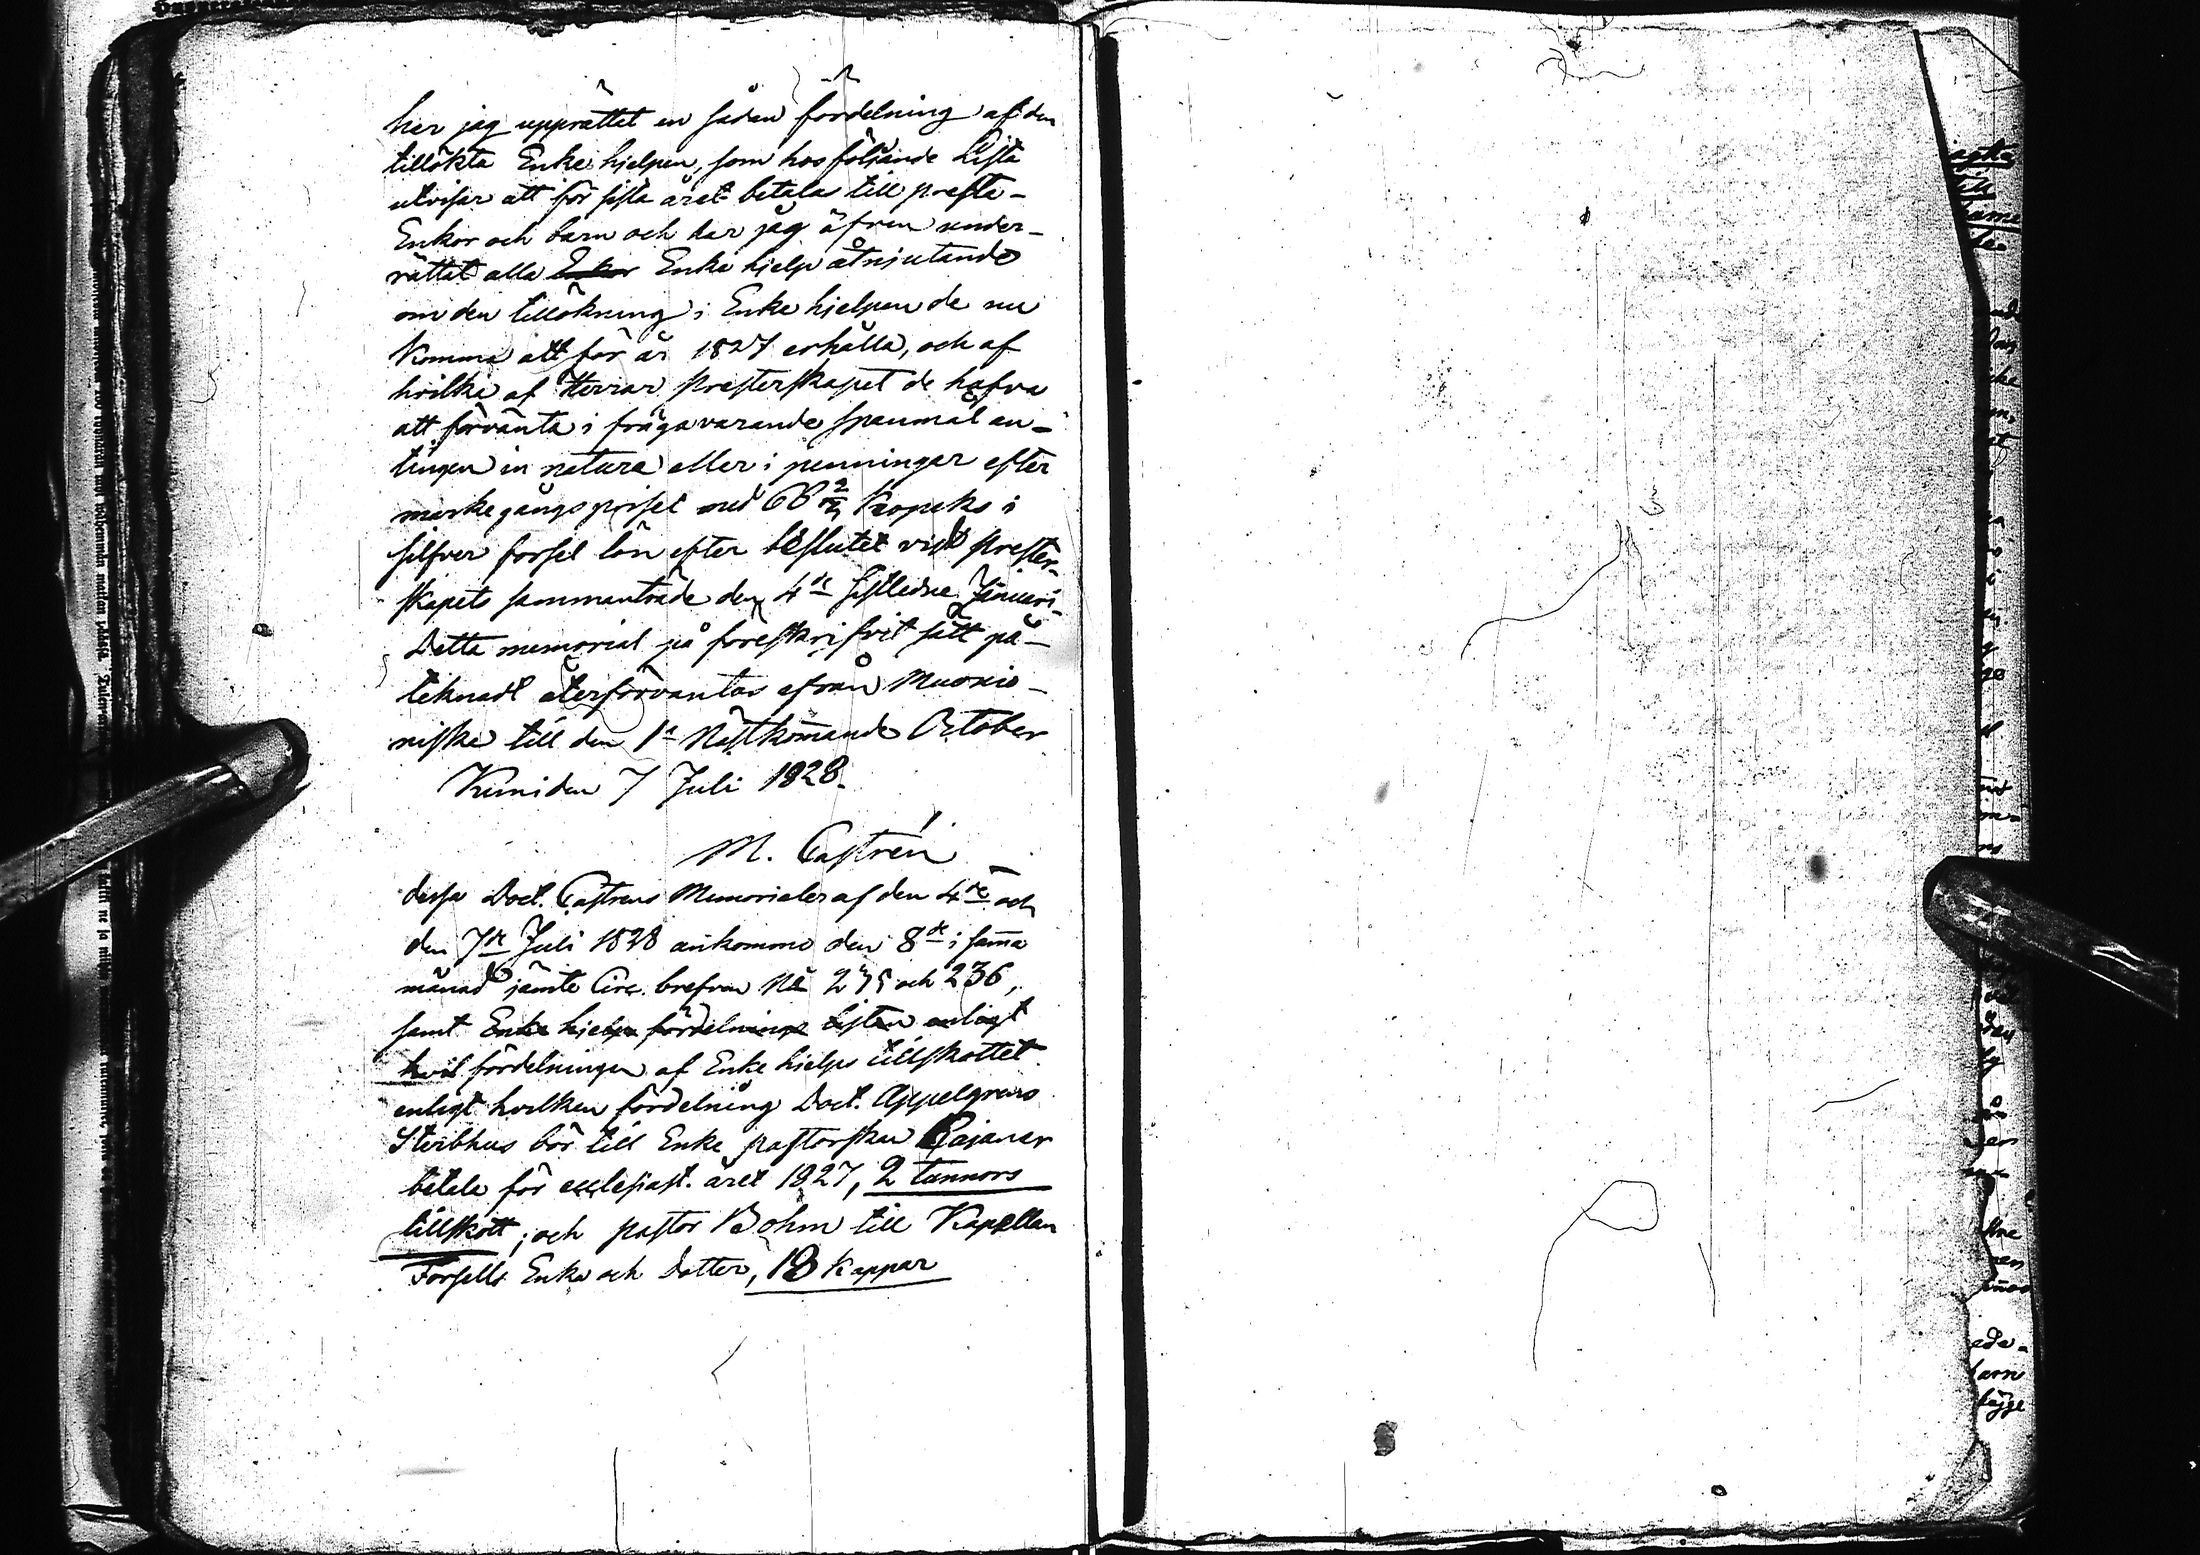 har jag upprättat en sådan fördelning af den
tillökta Enke hjelpen, som hos följande Lista
utvisar att för sista året betalas till preste-
Enkor och barn och har jag äfven under-
rättat alla Enkor Enke hjelp åtnjutande
om den tillökning i Enke hjelpen de nu
komma att för år 1827 erhålla, och af
hvilka af Herrar Presterskapet de hafva
att förvänta i fråga varande spanmål an-
tingen in natura eller i penningar efter
markegångspriset med Kopeks i
silfver forsel lön efter beslutet vid Prester-
skapets sammanträde den 4de sistledne Januari.
Detta memorial på föreskrifvit sätt på-
teknadt återförväntas ifrån Muonio-
niska till den 1a Nästkommande October
Kemi den 7 Juli 1828.
M. Castrén
dessa Doct. Castrens Memorialer af den 4de och
den 7de Juli 1828 ankommo den 8de i samma
månad jämte Circ. brefven No 235 och 236,
samt Enke hielps fördelnings listan enligt
hvil fördelningen af Enke hielps tillskottet
enligt hvilken fördelning Doct. Appelgrens
Sterbhus bör till Enke pastorskan Cajanar
betala för ecclesiast. året 1827, 2 tunnors
tillskott; och pastor Bohm till Kapellan
Forsells Enka och Dotter, 18 kappar